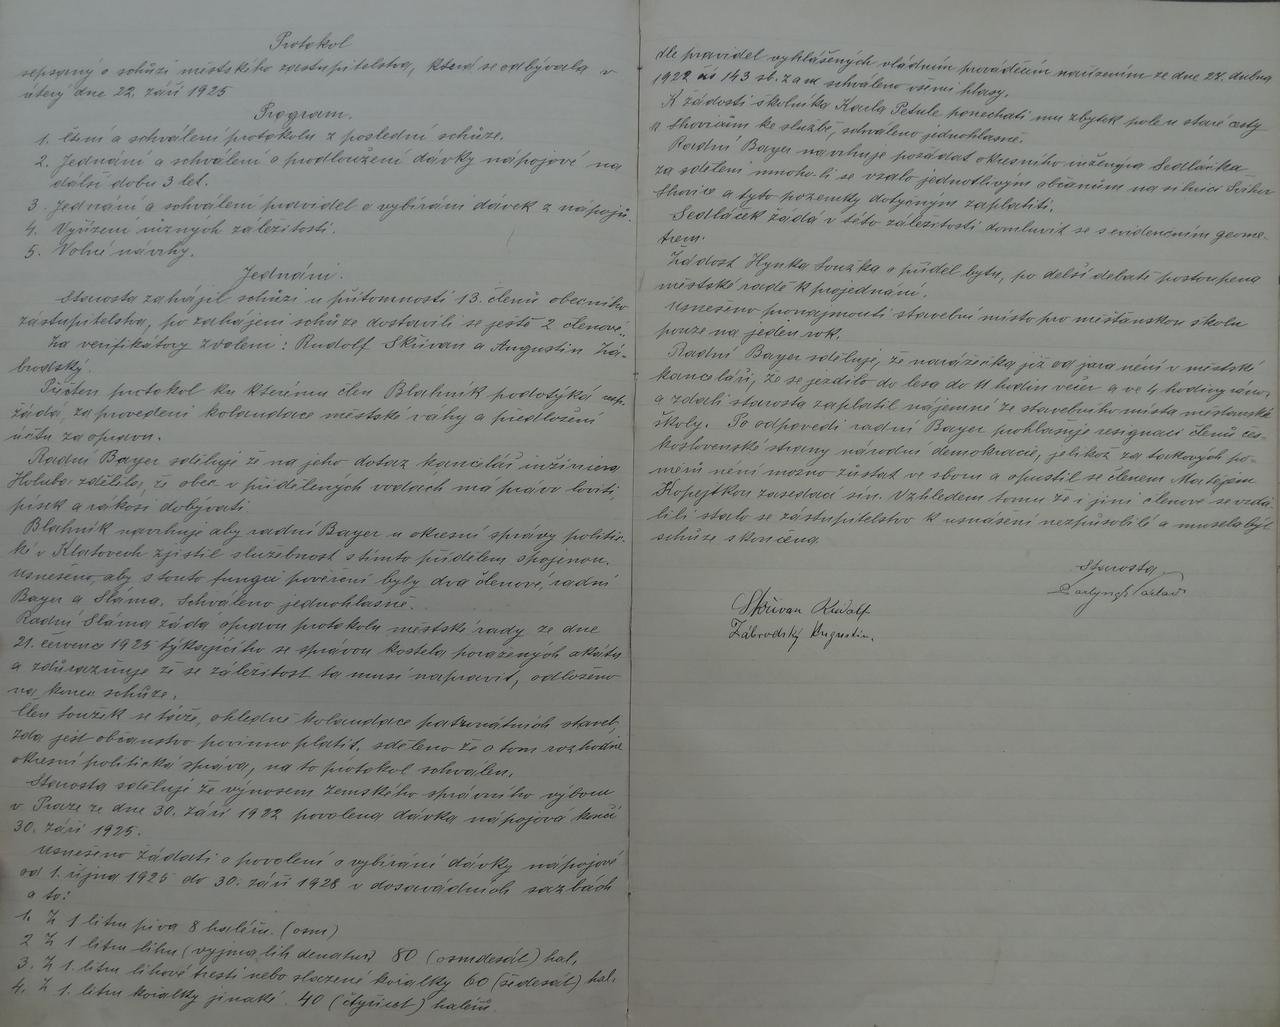 Protokol
sepsaný o schůzi městského zastupitelstva, která se odbývala v
úterý dne 22. září 1925
Program.
1. Čtení a schválení protokolu z poslední schůze.
2. Jednání a schválení o prodloužení dávky nápojové na
další dobu 3 let.
3. Jednání a schválení pravidel o vybírání dávek z nápojů.
4. Vyřízení různých záležitostí.
5. Volné návrhy.
Jednání.
Starosta zahájil schůzi u přítomnosti 13. členů obecního
zástupitelstva, po zahájení schůze dostavili se ještě 2 členové.
Za verifikátory zvoleni: Rudolf Skřivan a Augustin Zá-
brodský.
Přečten protokol ku kterému člen Blahník podotýká resp.
žádá, za provedení kolaudace městské váhy a předložení
účtu za opravu.
Radní Bayer sděluje že na jeho dotaz kancelář inžinýra
Holuba sdělila, že obec v přidělených vodách má právo loviti,
písek a rákosí dobývati.
Blahník navrhuje aby radní Bayer u okresní správy politic-
ké v Klatovech zjistil služebnost s tímto přídělem spojenou.
Usnešeno, aby s touto funkcí pověřeni byly dva členové, radní
Bayer a Sláma. Schváleno jednohlasně.
Radní Sláma žádá opravu protokolu městské rady ze dne
21. července 1925 týkajícího se správou kostela poražených akátů
a zdůrazňuje že se záležitost ta musí napravit, odloženo
na konec schůze.
Člen Soužek se táže, ohledně kolaudace patronátních staveb,
zda jest občanstvo povinno platit, sděleno že o tom rozhodne
okresní politická správa, na to protokol schválen.
Starosta sděluje že výnosem zemského správního výboru
v Praze ze dne 30. září 1922 povolená dávka nápojová končí
30. září 1925.
Usnešeno žádati o povolení o vybírání dávky nápojové
od 1. října 1925 do 30. září 1928 v dosavádních sazbách
a to:
1. Z 1 litru piva 8 haléřů. (osm)
2 Z 1 litru lihu (vyjma lih denatur) 80 (osmdesát) hal,
3. Z 1. litru lihové tresti nebo slazené kořalky 60 (šedesát) hal,
4. Z 1. litru kořalky jinaké 40 (čtyřicet) haléřů.
dle pravidel vyhlášených vládním prováděcím nařízením ze dne 27. dubna
1922 čís 143 sb. z a n schváleno všemi hlasy.
K žádosti školníka Karla Petule ponechati mu zbytek pole u staré cesty
k Shovicům ke službě, schváleno jednohlasně.
Radní Bayer navrhuje požádat okresního inženýra Sedláčka
za sdělení mnoho-li se vzalo jednotlivým občanům na silnici
a tyto pozemky dotyčným zaplatiti.
Sedláček žádá v této záležitosti domluvit se s evidenčním geome-
trem.
Žádost Hynka Soužka o příděl bytu, po delší debatě postoupena
městské radě k projednání.
Usnešeno pronajmouti stavební místo pro měšťanskou školu
pouze na jeden rok.
Radní Bayer sděluje, že narážečka již od jara není v městské
kanceláři, že se jezdilo do lesa do 11 hodin večer a ve 4 hodiny ráno,
a zdali starosta zaplatil nájemné ze stavebního místa měšťanské
školy. Po odpovědi radní Bayer prohlašuje resignaci členů čes-
koslovenské strany národní demokracie, jelikož za takových po-
měrů není možno zůstat ve sboru a opustil se členem Matějem
Kopejtkou zasedací síň. Vzhledem tomu že i jiní členové se vzdá-
lili stalo se zástupitelstvo k usnášení nezpůsobilé a musela být
schůze skončena.
Starosta
Skřivan Rudolf
Zábrodský Augustin.